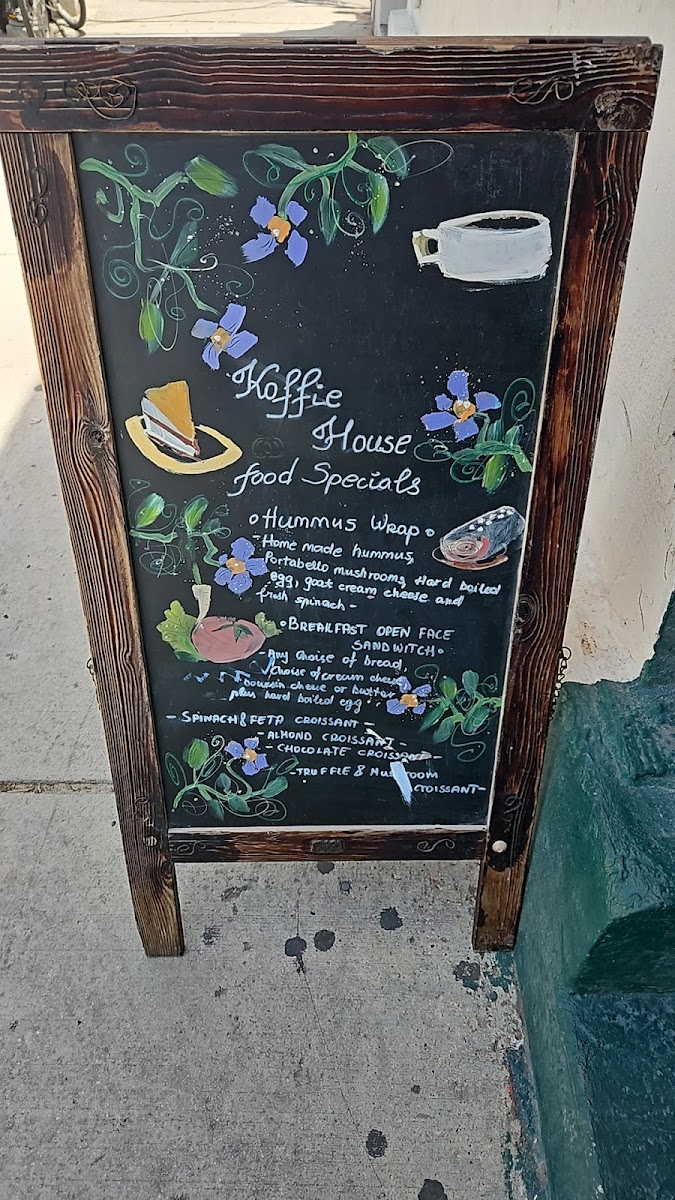 Koffie
House
food Specials
o Hummus Wrap o
- Home made hummus,
Portabello mushrooms, Hard boiled
egg, goat cream cheese and
fresh spinach -
o BREAKFAST OPEN FACE
SANDWITCH o
- Any Choise of bread,
Choise of cream cheese,
boursin cheese or butter
plus hard boiled egg.
- SPINACH & FETA CROISSANT -
- ALMOND CROISSANT -
- CHOCOLATE CROISSANT -
- TRUFFLE & MUSHROOM
CROISSANT -